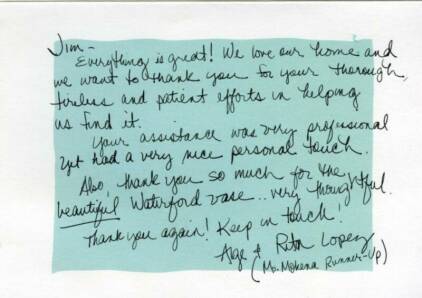 Jim -
Everything is great! We love our home and
we want to thank you for your thorough,
tireless and patient efforts in helping
us find it.
Your assistance was very professional
yet had a very nice personal touch.
Also, thank you so much for the
beautiful Waterford vase.. very thoughtful.
Thank you again! Keep in touch!
& Rita Lopez
(Ms. Mokena Runner-Up)